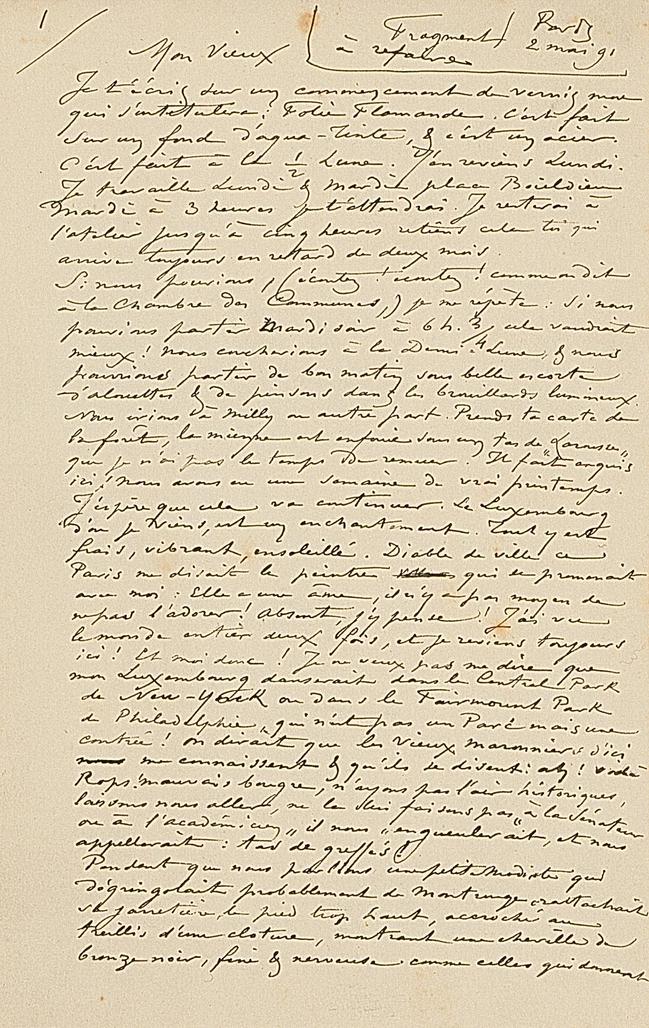 1
Fragment
à refaire
Paris
2 mai 91
Mon Vieux
Je t'écris sur un commencement de vernis mou
qui s'intitulera : Folie Flamande. C'est fait
sur un fond d'aqua-tinte, & c'est un acier.
C'est fait à la 1/2 Lune. J'en reviens Lundi.
Je travaille Lundi & Mardi place Boieldieu
Mardi à 3 heures je t'attendrai. Je resterai à
l'atelier jusqu'à cinq heures retiens cela toi qui
arrive toujours en retard de deux mois.
Si nous pouvions, (écoutez ! écoutez ! comme on dit
à la Chambre des Communes,) je me répète : si nous
pouvions partir Mardi soir à 6 h. 3/4, cela vaudrait
mieux ! nous coucherions à la Demi-Lune, & nous
pourrions partir de bon matin sous belle escorte
d'alouettes & de pinsons dans les brouillards lumineux.
Nous irions à Milly ou autre part. Prends ta carte de
la forêt, la mienne est enfouie sous un tas de "Larousse"
que je n'ai pas le temps de remuer. Il fait exquis
ici ! nous avons eu une semaine de vrai printemps.
J'espère que cela va continuer. Le Luxembourg
d'où je viens, est un enchantement. Tout y est
frais, vibrant, ensoleillé. Diable de ville ce
Paris me disait le peintre qui se promenait
avec moi : Elle a une âme, il n'y a pas moyen de
ne pas l'adorer ! Absent, j'y pense ! J'ai vu
le monde entier deux fois, et je reviens toujours
ici ! Et moi donc ! Je ne veux pas me dire que
mon Luxembourg danserait dans le Central Park
de New-York ou dans le Fairmount Park
de Philadelphie, qui n'est pas un Parc mais une
contrée ! on dirait que les vieux maronniers d'ici
me connaissent & qu'ils se disent : ah ! voilà
Rops ! mauvais bougre, n'ayons pas l'air historiques,
laissons nous aller, ne la lui faisons pas "à la Sénateur
ou à l'académicien" il nous "engueulerait", et nous
appellerait : tas de greffés !
Pendant que nous parlions une petite modiste qui
dégringolait probablement de Montrouge rattachait
sa jarretière, le pied trop haut, accroché au
treillis d'une cloture, montrant une cheville de
bronze noir, fine & nerveuse comme celles qui donnent